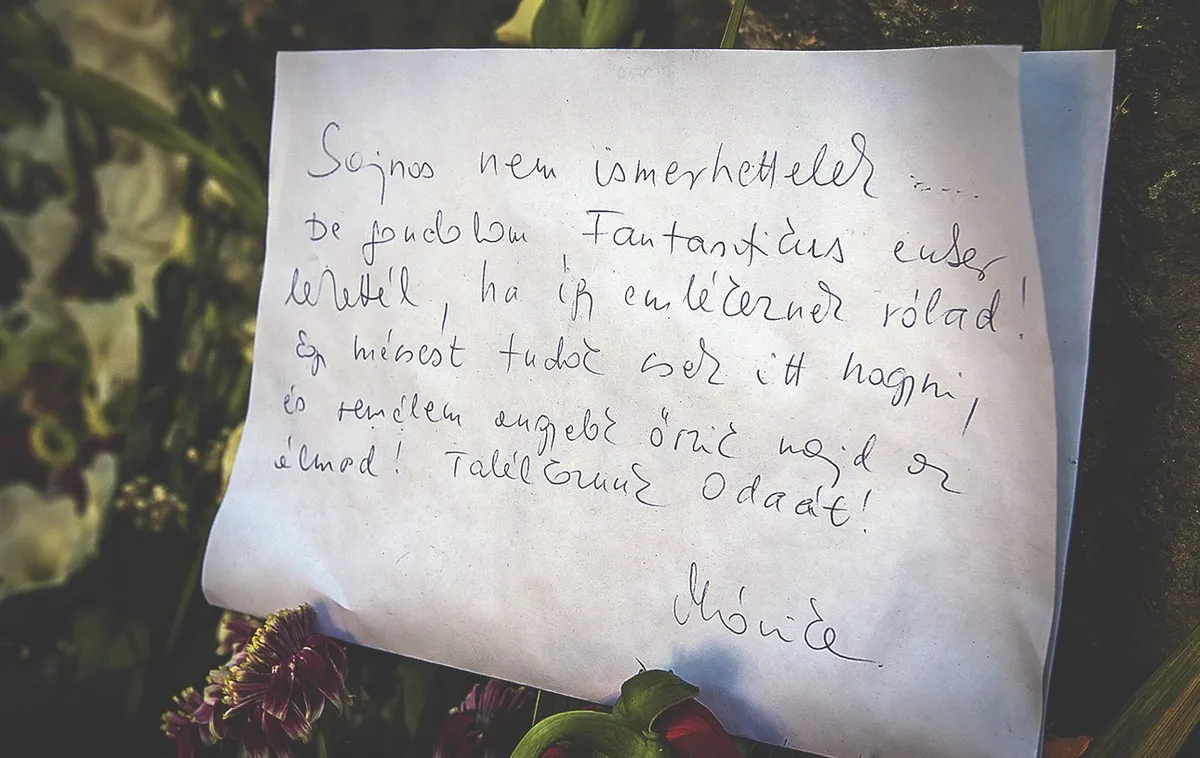 Sajnos nem ismerhettelek ......
De gondolom Fantasztikus ember
lehettél, ha így emlékeznek rólad!
Egy mécsest tudok csak itt hagyni,
és remélem angyalok őrzik majd az
álmod! Találkozunk Odaát!
Mónika